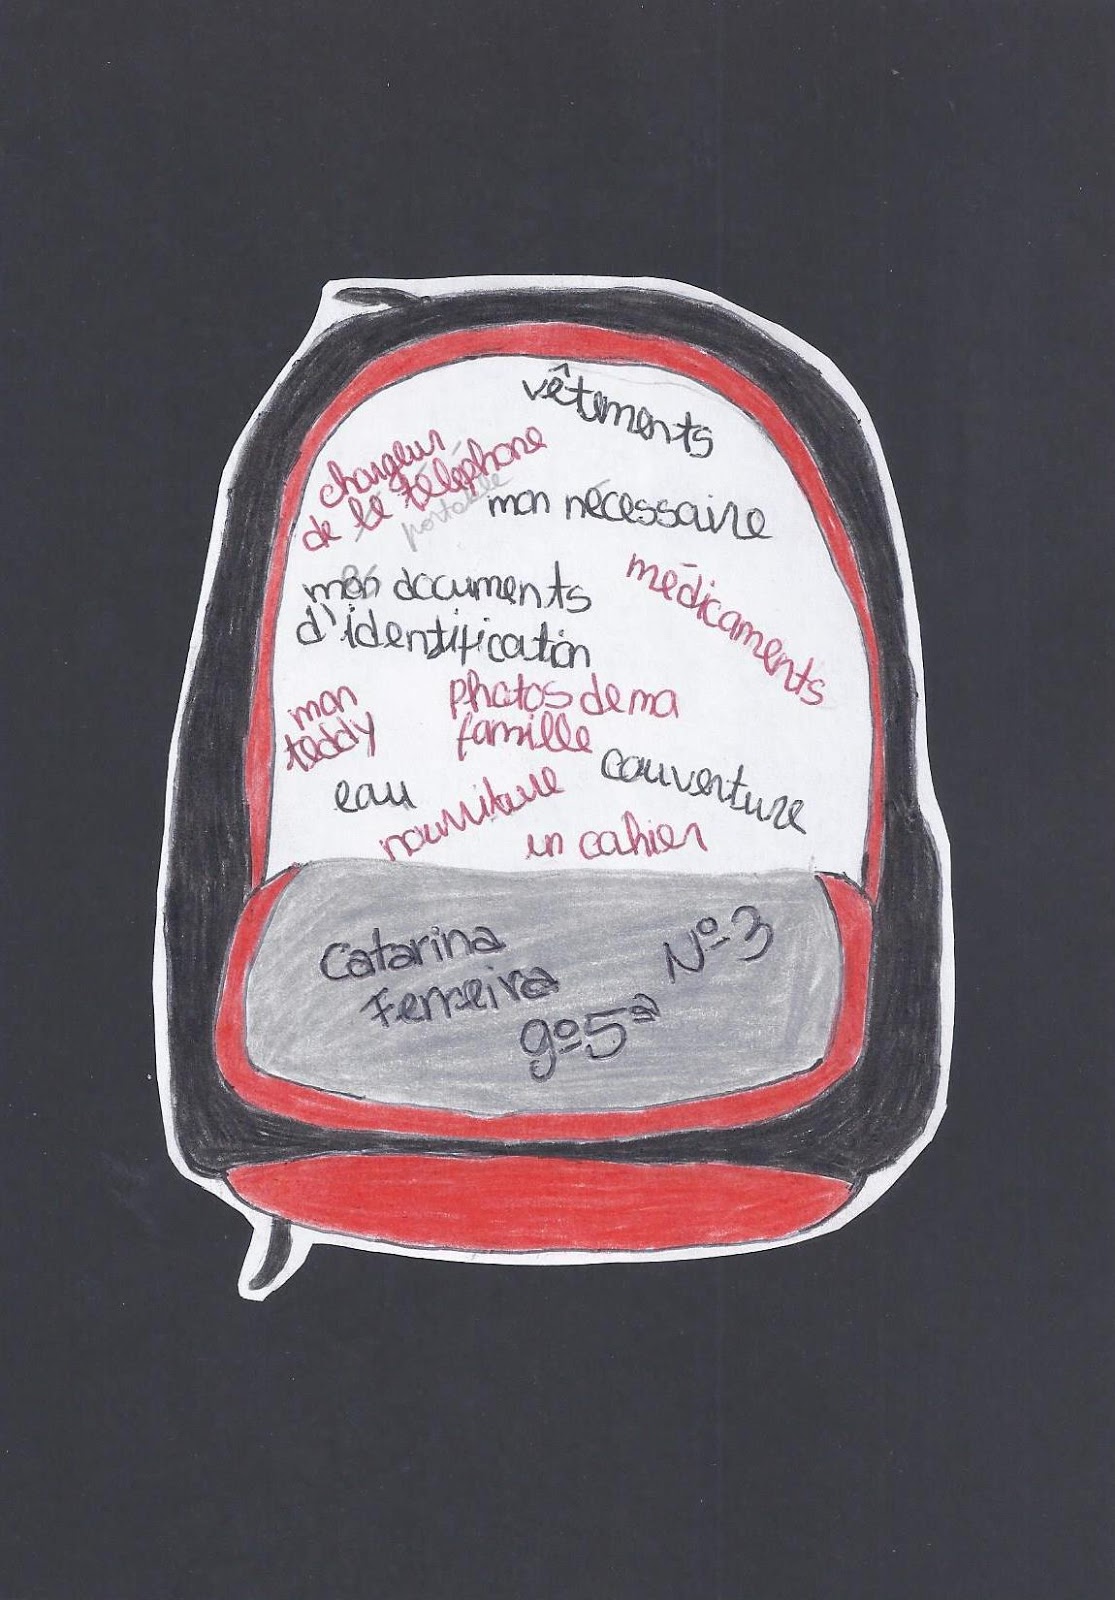 vêtements
chargeur
de le téléphone
portable
mon nécessaire
médicaments
mes documents
d'identification
mon
teddy
photos de ma
famille
eau
couverture
nourriture
un cahier
Catarina
Ferreira
Nº 3
9º5ª